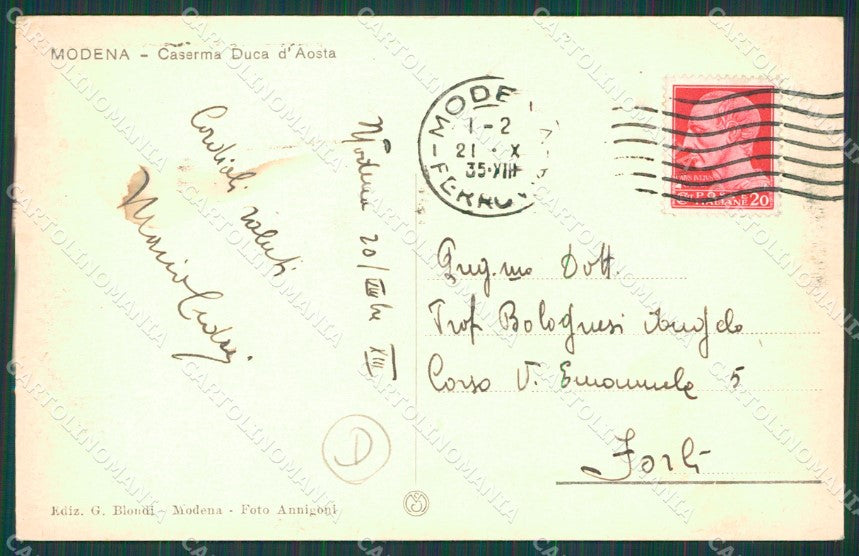 MODENA - Caserma Duca d'Aosta
Cordiali saluti
Mario
Modena 20/VIIIbre XIII
MODENA
1-2
21 · X
35·XIII
FERROV
POSTE
ITALIANE 20
Preg.mo Dott.
Prof Bolognesi Angelo
Corso V. Emanuele 5
Forlì
D
Ediz. G. Biondi - Modena - Foto Annigoni
CARTOLINOMANIA